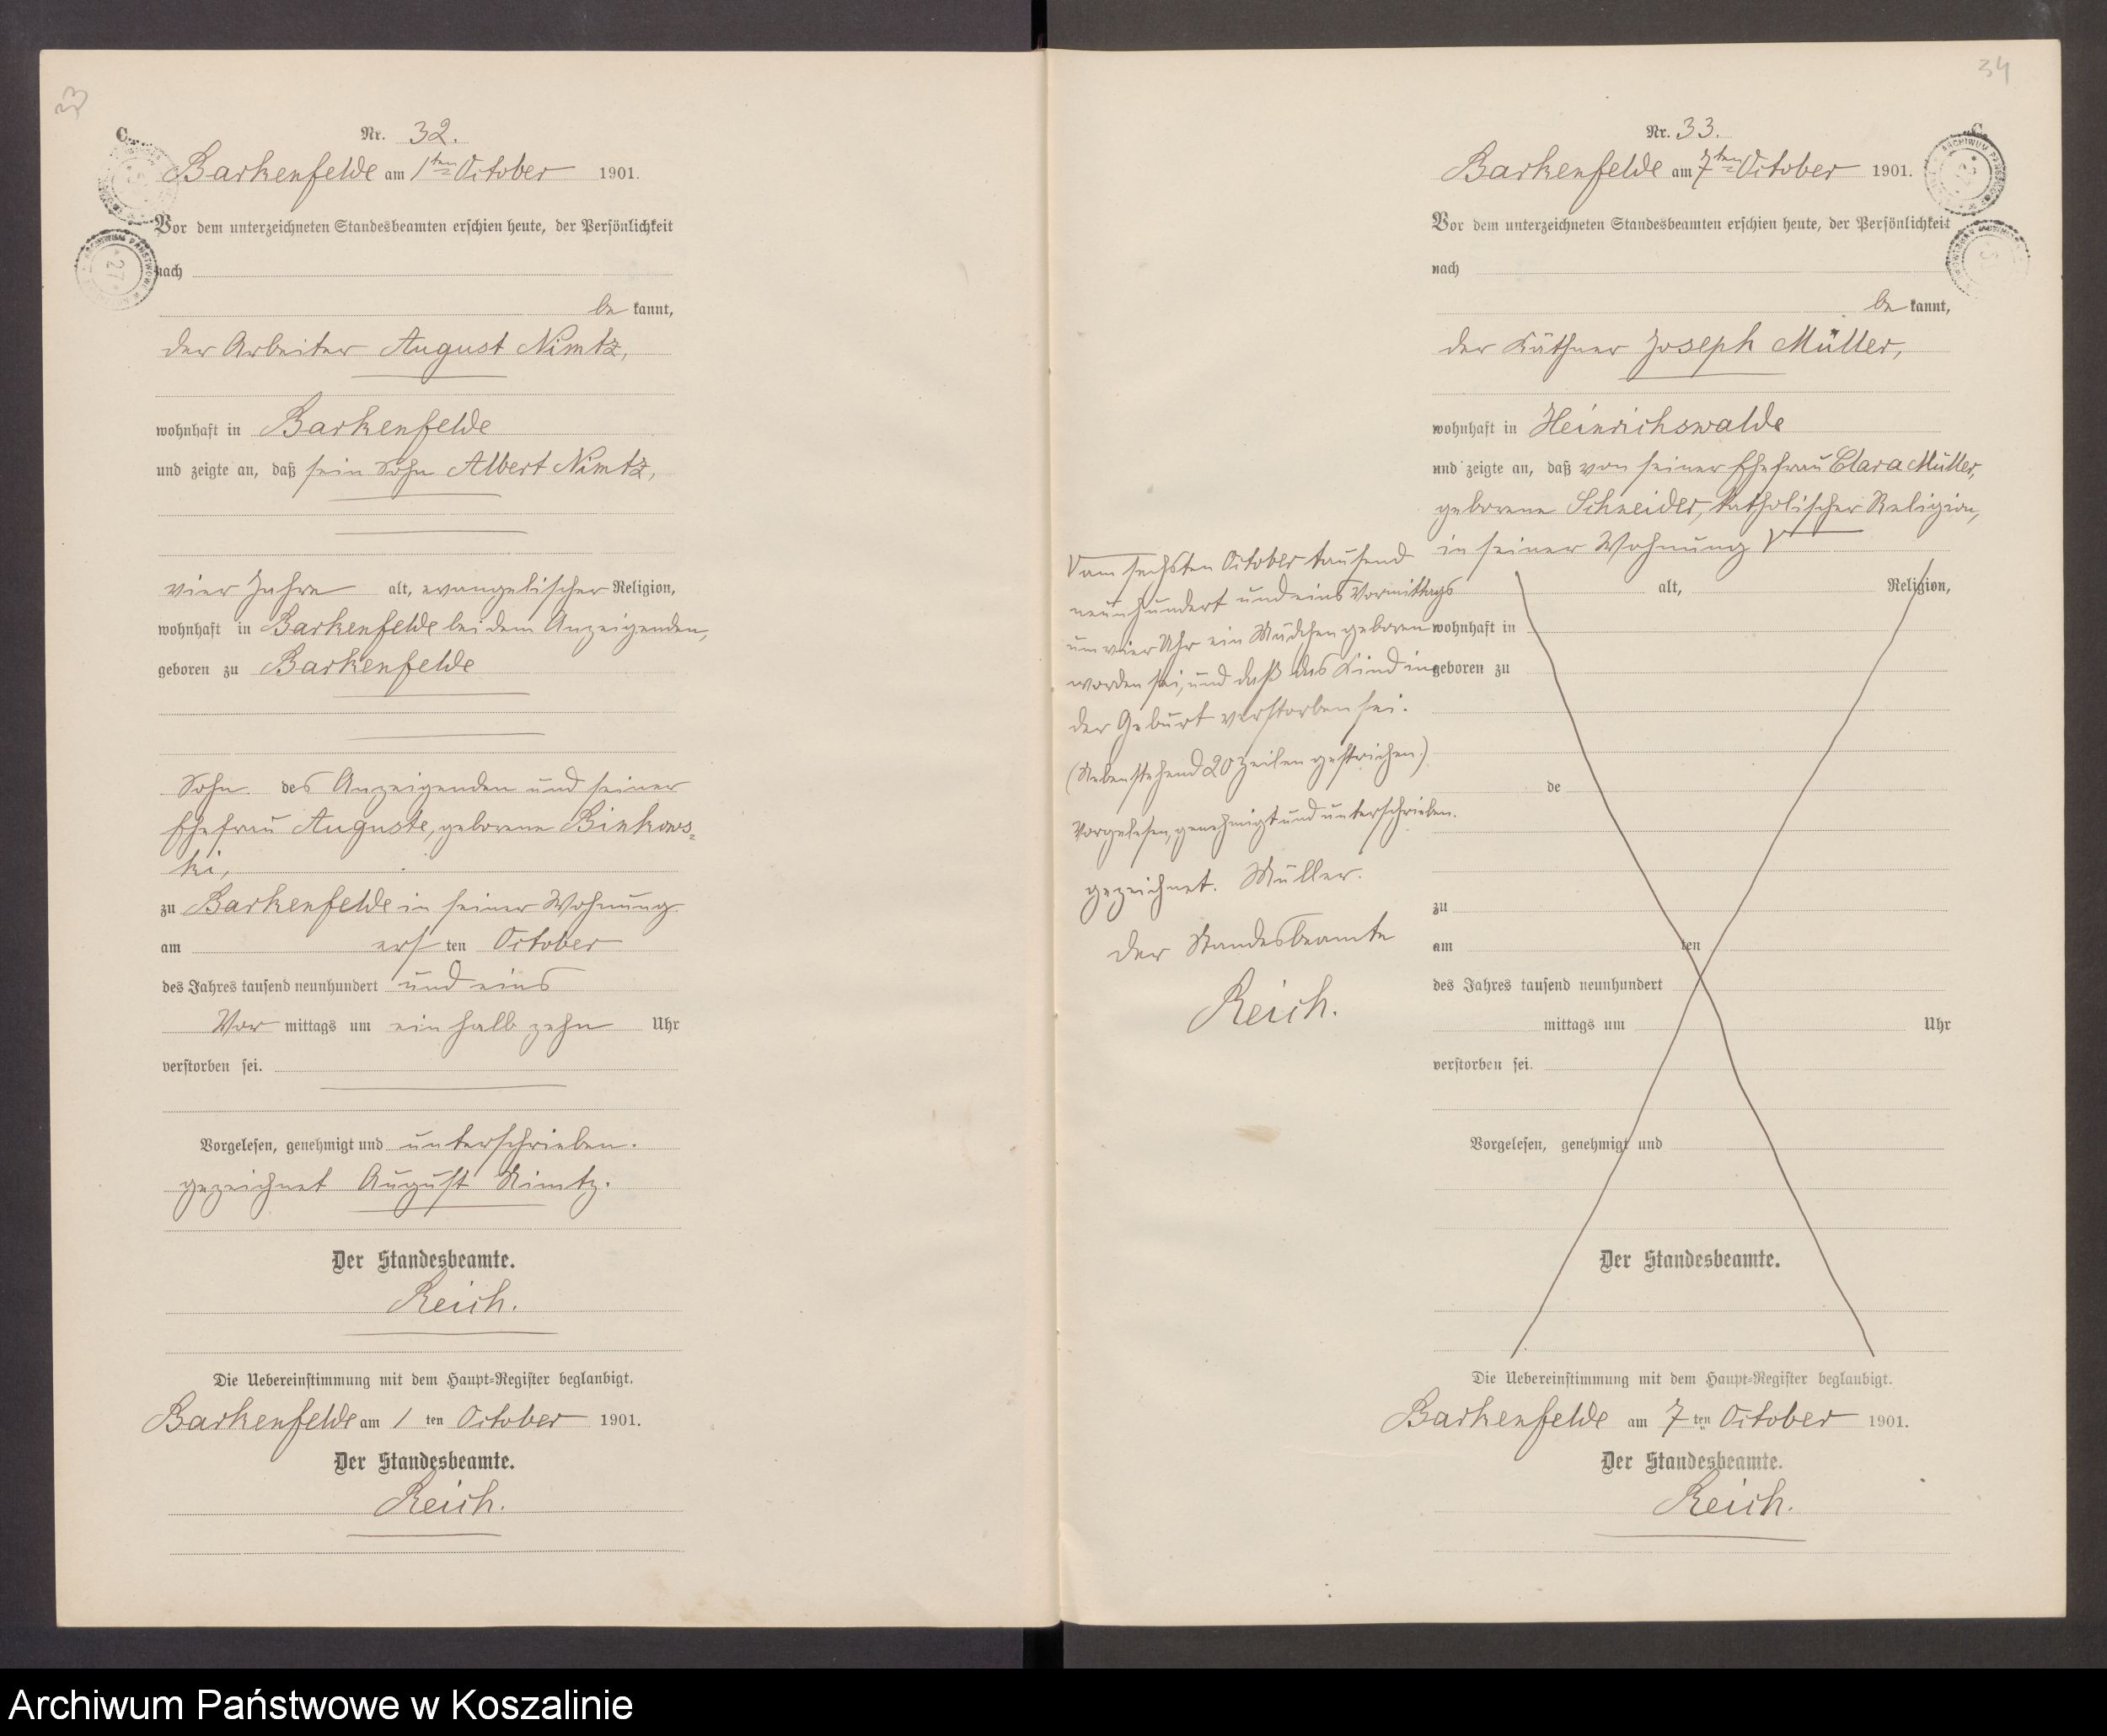 33
C.
Nr. 32.
Barkenfelde am 1ten October 1901.
Vor dem unterzeichneten Standesbeamten erschien heute, der Persönlichkeit
nach
be kannt,
der Arbeiter August Nimtz,
wohnhaft in Barkenfelde
und zeigte an, daß sein Sohn Albert Nimtz,
vier Jahre alt, evangelischer Religion,
wohnhaft in Barkenfelde bei dem Anzeigenden,
geboren zu Barkenfelde
Sohn des Anzeigenden und seiner
Ehefrau Auguste, geborene Binkows-
ki,
zu Barkenfelde in seiner Wohnung
am ersten October
des Jahres tausend neunhundert und eins
Vor mittags um ein halb zehn Uhr
verstorben sei.
Vorgelesen, genehmigt und unterschrieben.
gezeichnet August Nimtz.
Der Standesbeamte.
Reich.
Die Uebereinstimmung mit dem Haupt-Register beglaubigt.
Barkenfelde am 1 ten October 1901.
Der Standesbeamte.
Reich.
34
C.
Nr. 33.
Barkenfelde am 7ten October 1901.
Vor dem unterzeichneten Standesbeamten erschien heute, der Persönlichkeit
nach
be kannt,
der Käthner Joseph Müller,
wohnhaft in Heinrichswalde
und zeigte an, daß von seiner Ehefrau Clara Müller,
geborene Schneider, katholischer Religion,
in seiner Wohnung
am sechsten October tausend
neunhundert und eins Vormittags
um vier Uhr ein Mädchen geboren
worden sei, und daß das Kind in
der Geburt verstorben sei.
(Nebenstehend 20 Zeilen gestrichen.)
Vorgelesen, genehmigt und unterschrieben.
gezeichnet. Müller.
Der Standesbeamte
Reich.
alt, Religion,
wohnhaft in
geboren zu
de
zu
am ten
des Jahres tausend neunhundert
mittags um Uhr
verstorben sei.
Vorgelesen, genehmigt und
Der Standesbeamte.
Die Uebereinstimmung mit dem Haupt-Register beglaubigt.
Barkenfelde am 7 ten October 1901.
Der Standesbeamte.
Reich.
Archiwum Państwowe w Koszalinie